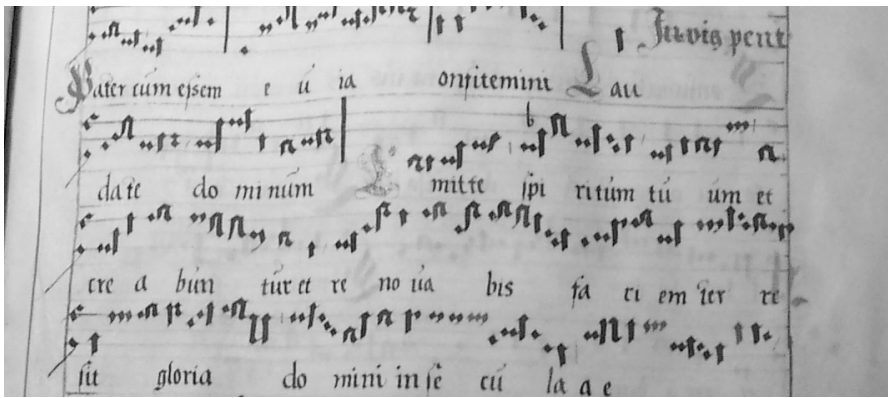 In vig pent
Pater cum essem e u ia onfitemini Lau
date do minum E mitte spi ritum tu um et
cre a bun tur et re no ua bis fa ci em ter re
sit gloria do mini in se cu la a e